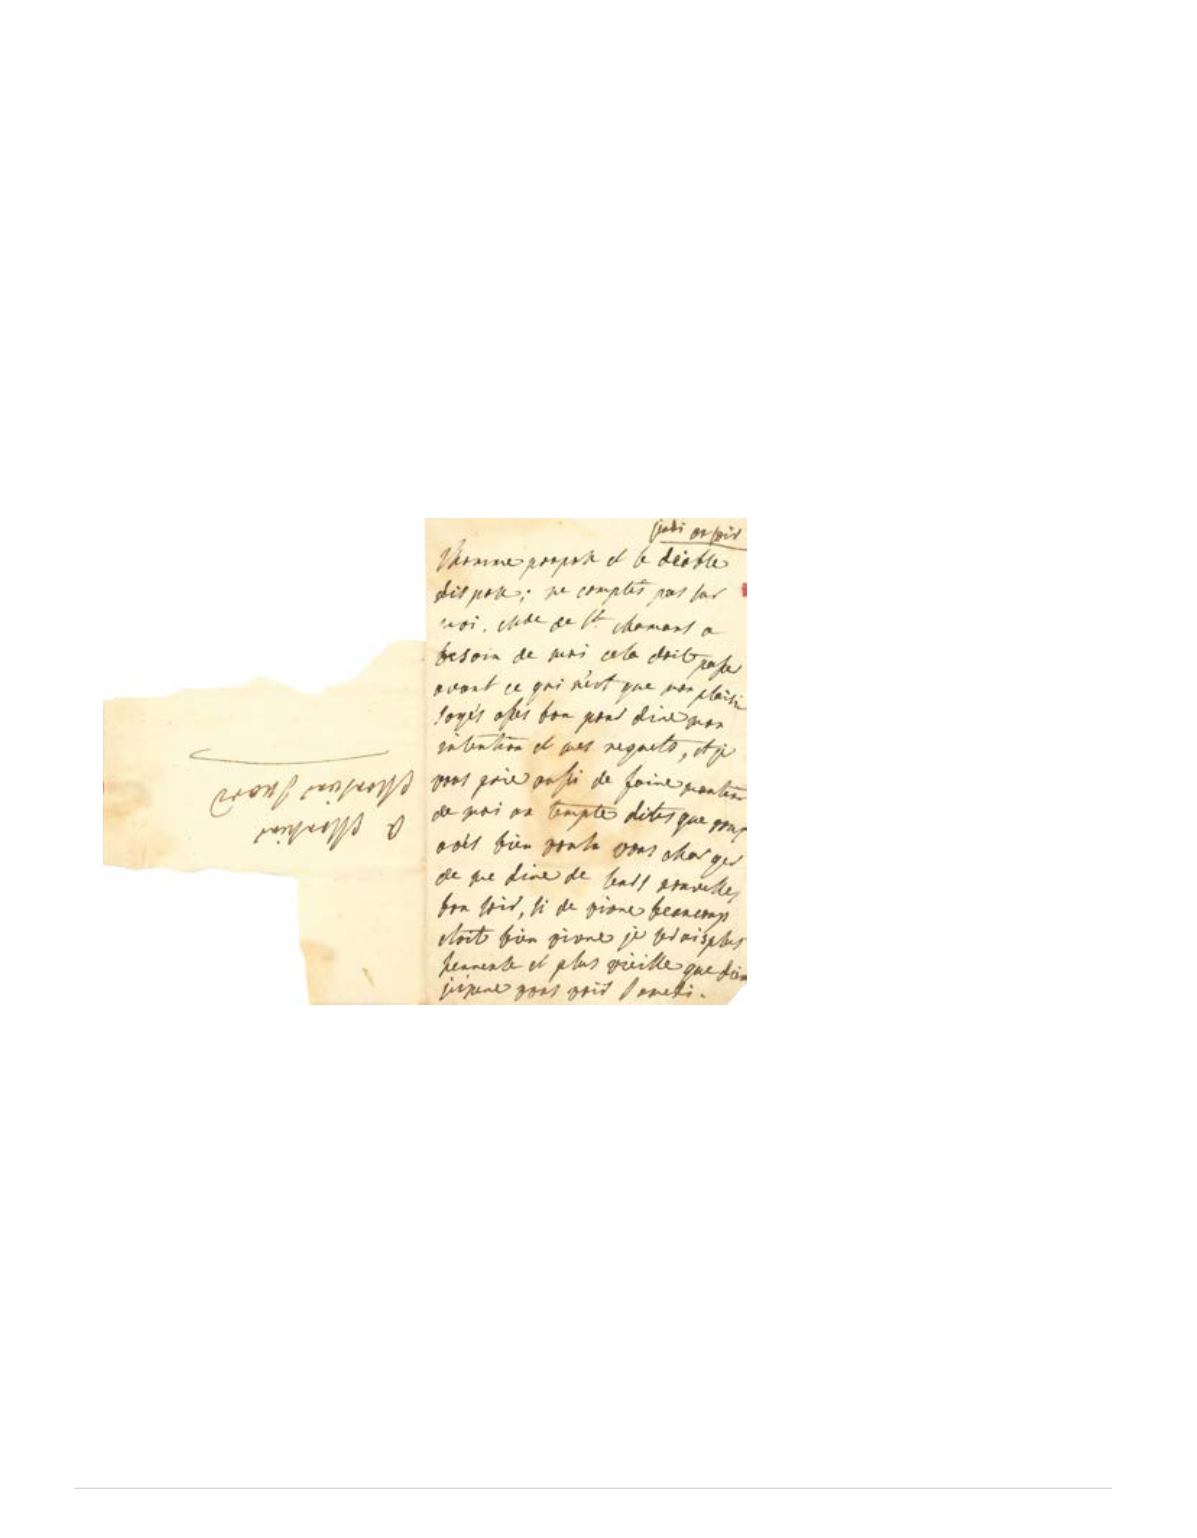 jeudi au soir
l'homme propose et le diable
dispose; ne comptés pas sur
moi. Mde de St. chamant a
besoin de moi cela doit passer
avant ce qui n'est que mon plaisir
soyés assés bon pour dire mon
intention et mes regrets, et je
vous prie aussi de faire
de moi au temple dites que vous
avés bien voulu vous charger
de me dire de leurs nouvelles
bon soir, si de vivre beaucoup
etoit bien vivre je serais plus
et plus vieille que
j'espere vous voir samedi.
A Monsieur
Monsieur Suard